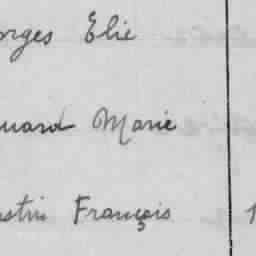 orges Elie
uard Marie
ustin François 1